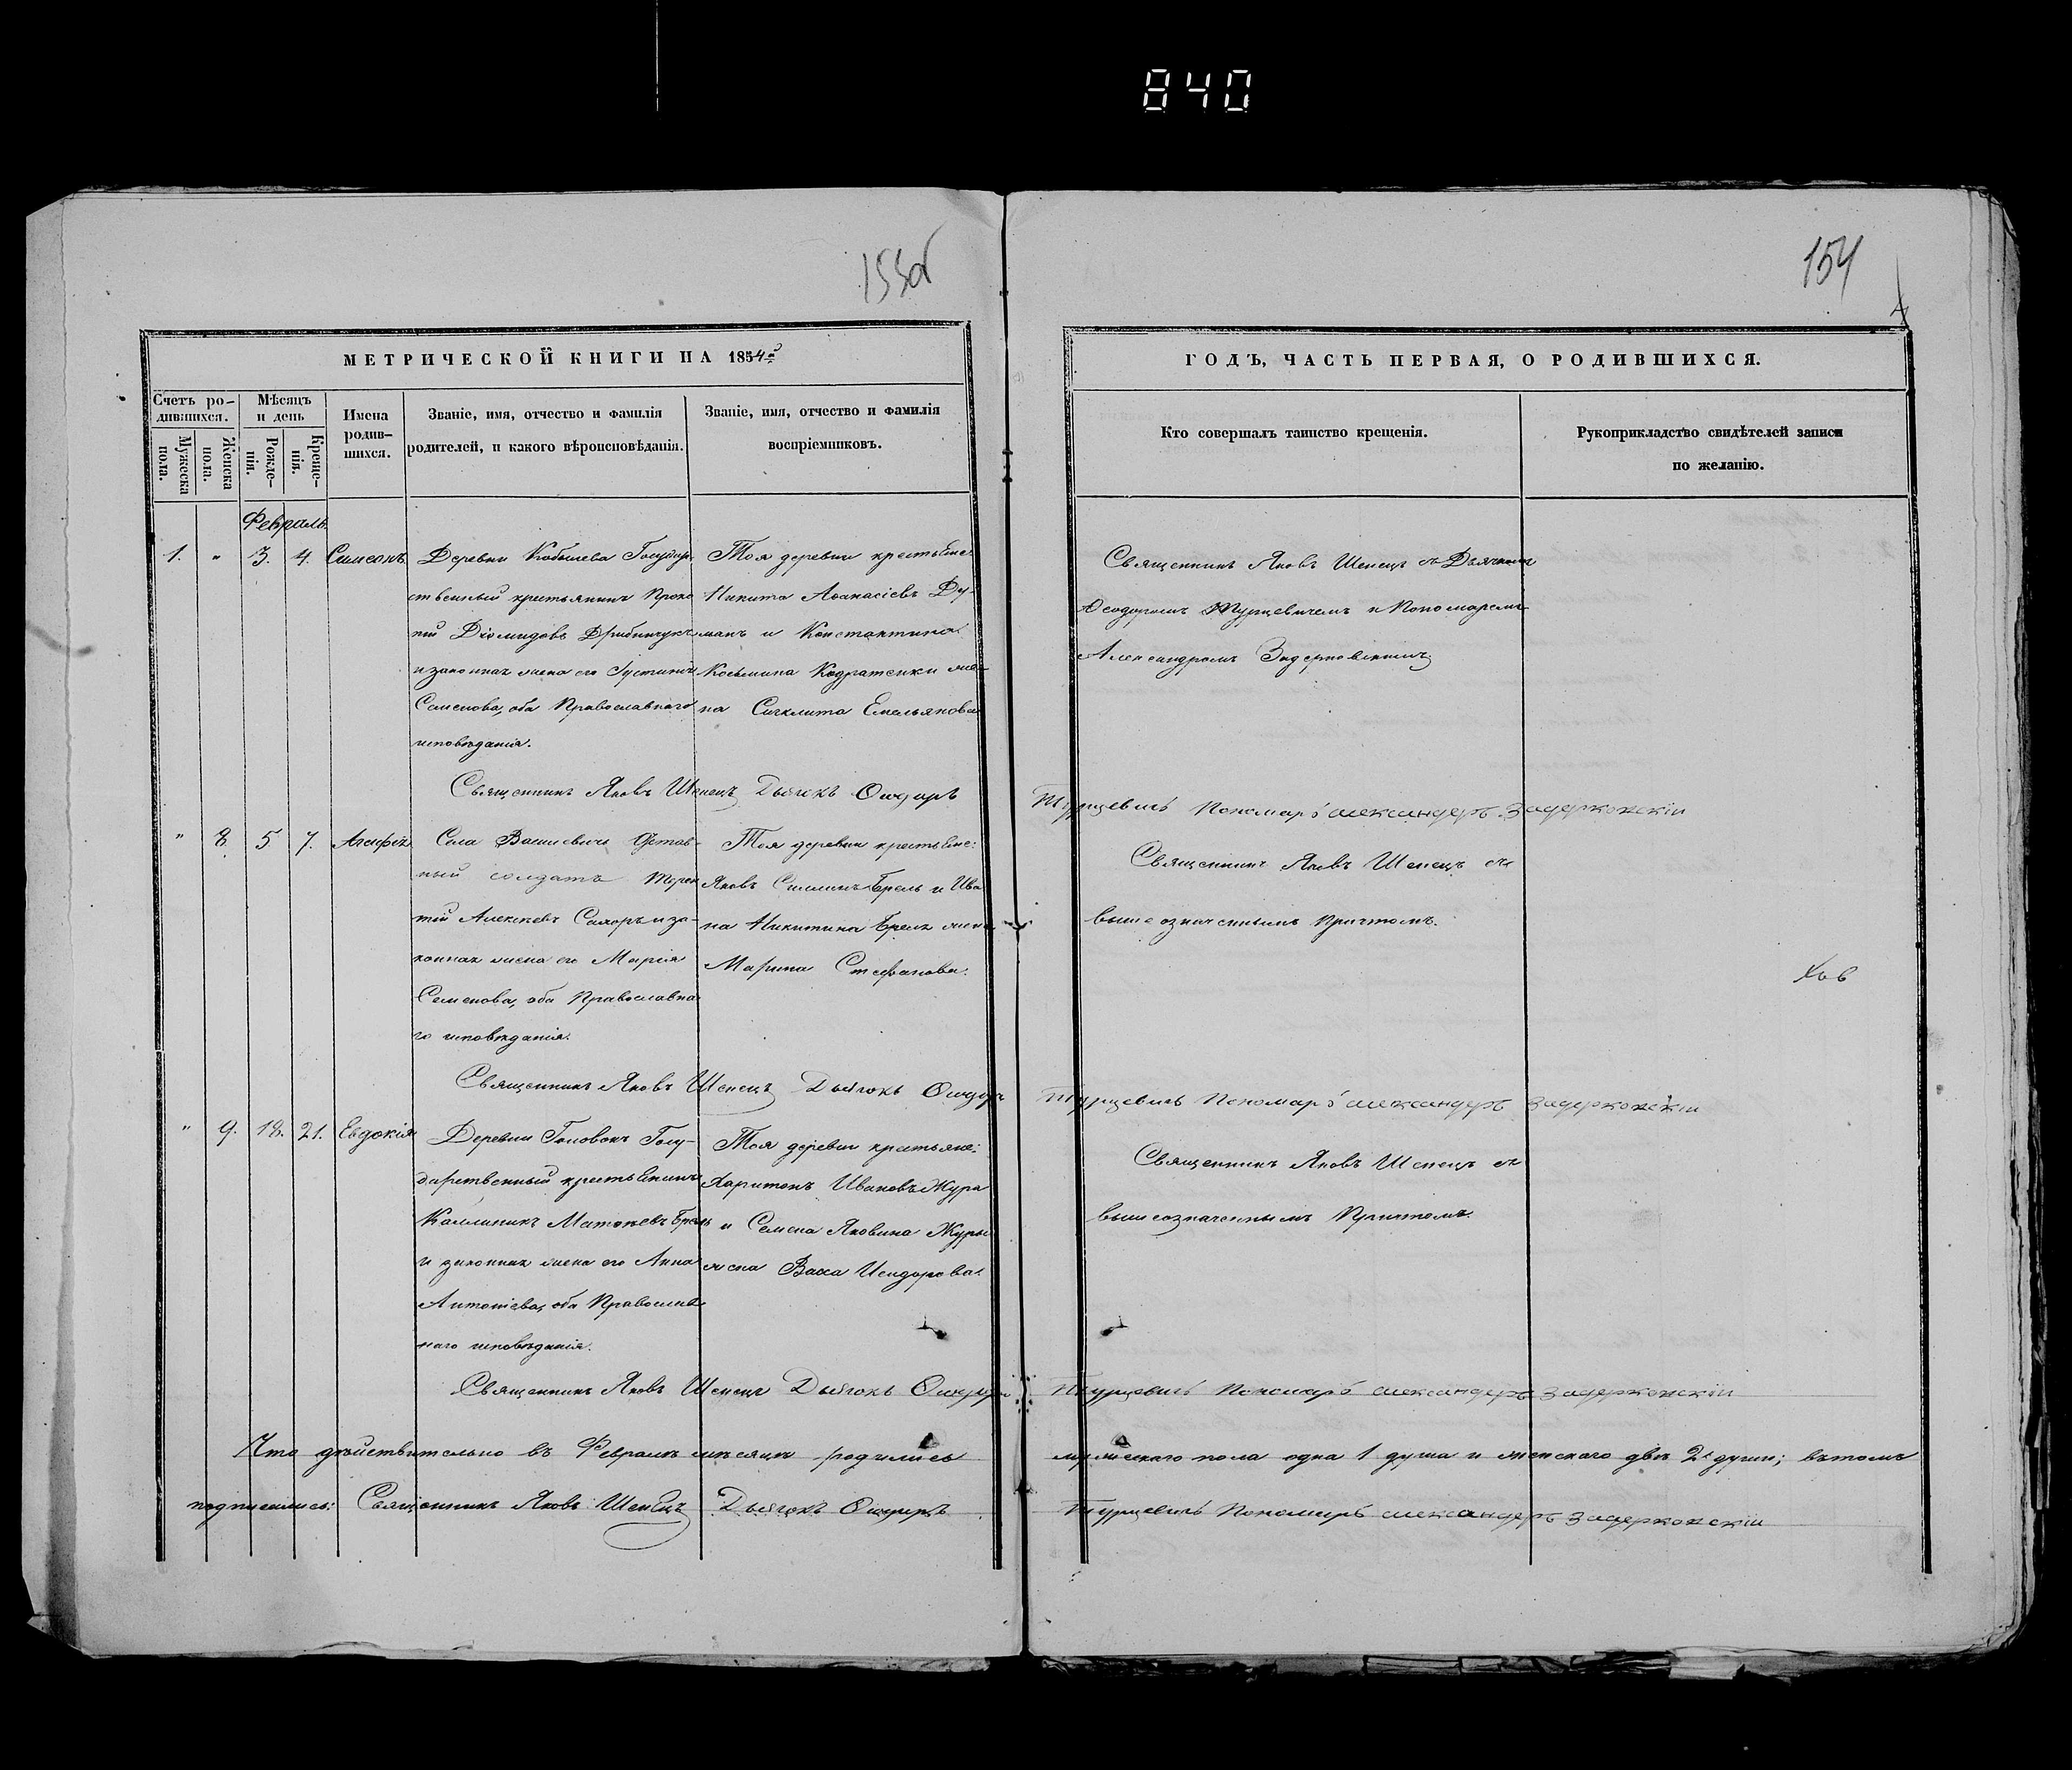 840
153об
154
4
МЕТРИЧЕСКОЙ КНИГИ НА 1854й
Счетъ ро-
дившихся.
Мѣсяцъ
и день
Мужеска
пола.
Женска
пола.
Рожде-
нія.
Креще-
нія.
Имена
родив-
шихся.
Званіе, имя, отчество и фамилія
родителей, и какого вѣроисповѣданія.
Званіе, имя, отчество и фамилія
воспріемниковъ.
ГОДЪ, ЧАСТЬ ПЕРВАЯ, О РОДИВШИХСЯ.
Кто совершалъ таинство крещенія.
Рукоприкладство свидѣтелей записи
по желанію.
Февраль.
1. " 3. 4. Симеонъ.
Деревни Кобылева Государ-
ственный крестьянинъ Проко
пій Діомидовъ
и законная жена его
Семенова, оба Православнаго
исповѣданія.
Тоя деревни крестьяне:
Никита Аѳанасіевъ Ду-
манъ и Константина
Козьмина Кодратенки же-
на Синклита Емельянова
Священникъ Яковъ Шенецъ съ Дьячкомъ
Ѳеодоромъ Турцевичемъ и Пономаремъ
Александромъ
Священникъ Яковъ Шенецъ Дьячокъ Ѳеодоръ
Турцевичъ Пономарь Александеръ Задерковскій
" 8. 5 7. Агафія
Села Отстав-
ный солдатъ Терен
тій Алексѣевъ и за-
конная жена его Марія
Семенова, оба Православна
го исповѣданія.
Тоя деревни крестьяне:
Яковъ Брель и Ива
на Никитина Бреля жена
Марина Стефанова.
Священникъ Яковъ Шенецъ съ
вышеозначеннымъ Причтомъ.
Священникъ Яковъ Шенецъ Дьячокъ Ѳеодоръ
Турцевичъ Пономарь Александеръ Задерковскій
" 9. 18. 21. Евдокія
Деревни Головокъ Госу-
дарственный крестьянинъ
Каллиникъ Матѳеевъ Брель
и законная жена его Анна
Антоніева, оба Православ
наго исповѣданія.
Тоя деревни крестьяне:
Харитонъ Ивановъ Жура
и Семена Яковина Журы
жена Васса Исидорова.
Священникъ Яковъ Шенецъ съ
вышеозначеннымъ Причтомъ.
Священникъ Яковъ Шенецъ Дьячокъ Ѳеодоръ
Турцевичъ Пономарь Александеръ Задерковскій
Что дѣйствительно въ Февралѣ мѣсяцѣ родились
мужескаго пола одна 1 душа и женскаго двѣ 2 души; въ томъ
подписались: Священникъ Яковъ Шенецъ Дьячокъ Ѳеодоръ
Турцевичъ Пономарь Александеръ Задерковскій